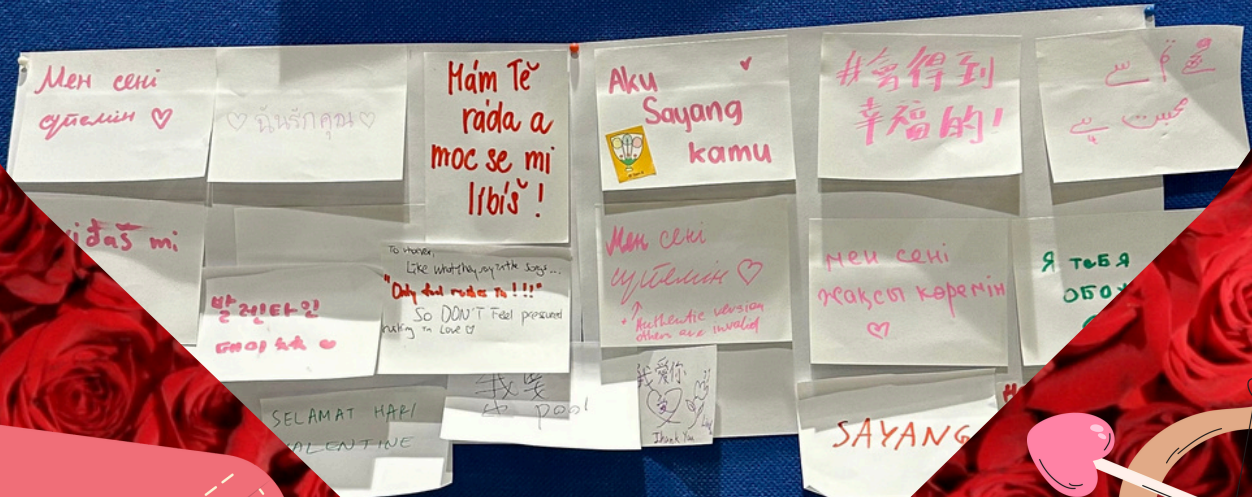 Мен сені
сүйемін ♡
♡ ฉันรักคุณ ♡
Mám Tě
ráda a
moc se mi
líbíš !
Aku
Sayang
kamu
#會得到
幸福的!
محبت ہے
mi
발렌타인
데이
To
Like what they say in the songs...
"Only fools rushes in!!!"
So DON'T feel pressured
in Love ♡
Мен сені
сүйемін ♡
↑
* Authentic version
others are invalid
мен сені
жақсы көремін
♡
Я тебя
ОБОЖ
SELAMAT HARI
VALENTINE
我要
poo!
我爱你
Thank You
SAYANG